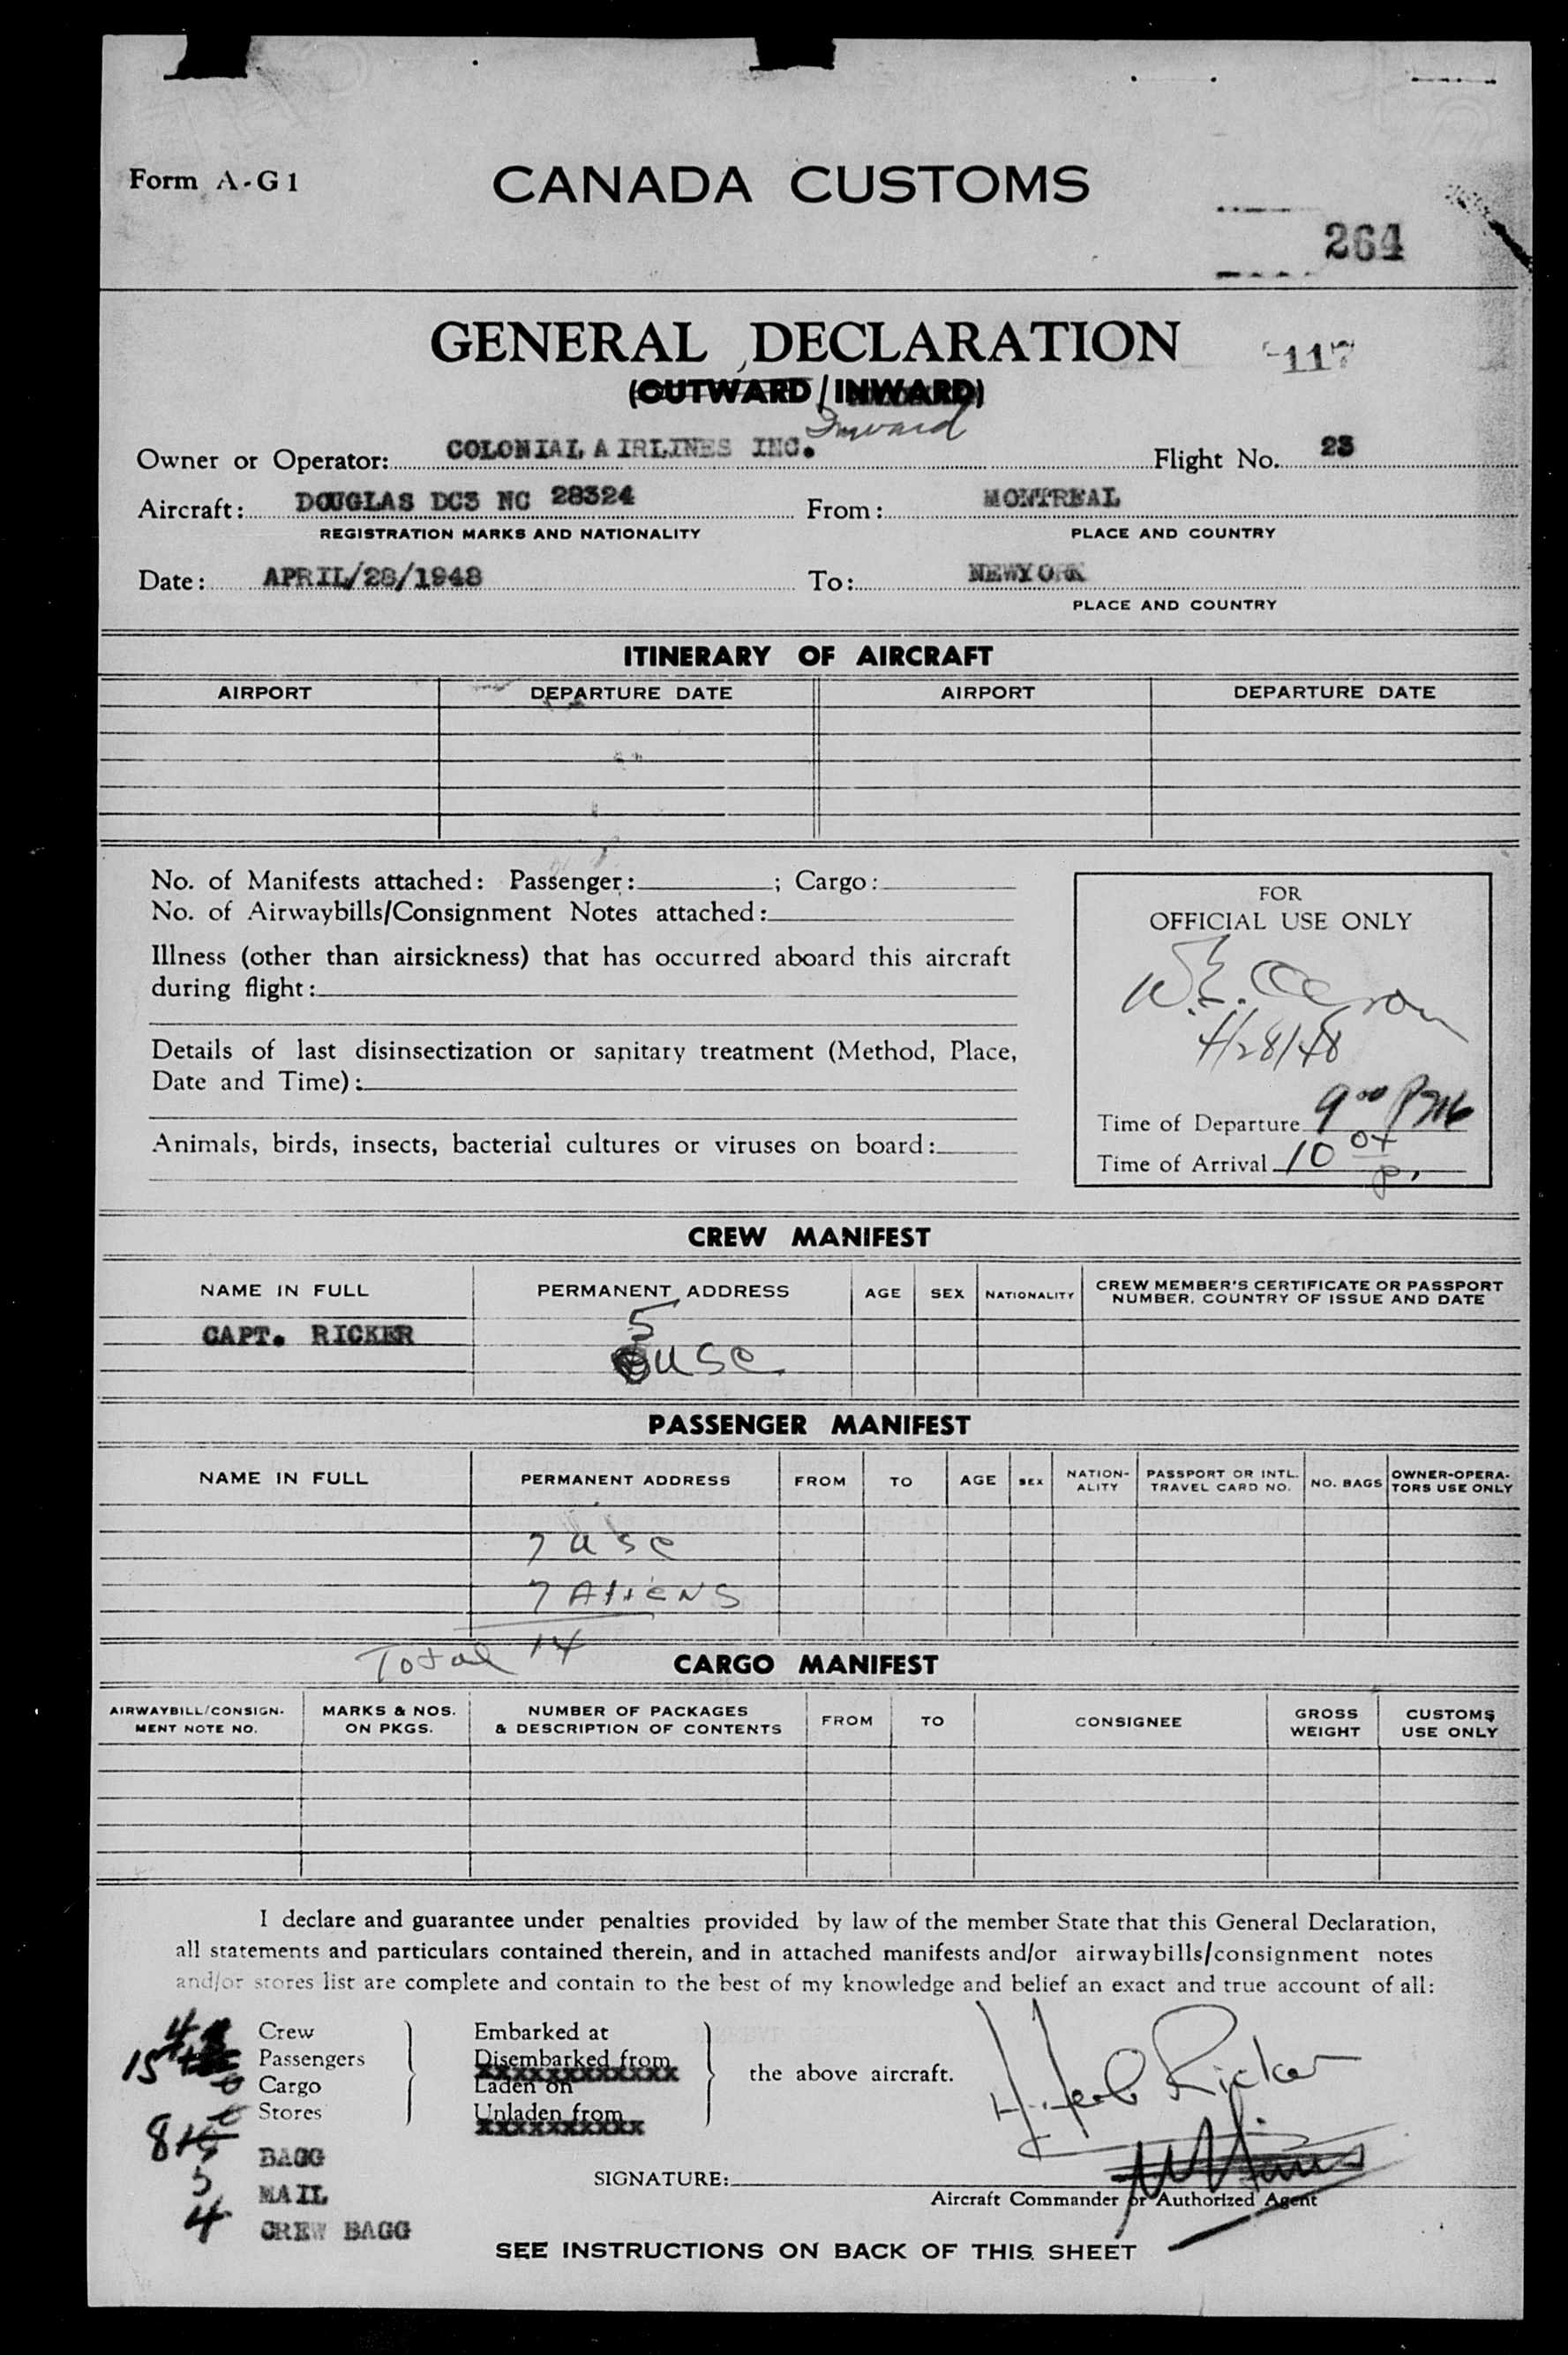 Form A-G1
CANADA CUSTOMS
264
GENERAL DECLARATION
117
(OUTWARD/INWARD)
Inward
Owner or Operator: COLONIAL AIRLINES INC. Flight No. 23
Aircraft: DOUGLAS DC3 NC 28324 From: MONTREAL
REGISTRATION MARKS AND NATIONALITY PLACE AND COUNTRY
Date: APRIL/28/1948 To: NEWYORK
PLACE AND COUNTRY
ITINERARY OF AIRCRAFT
AIRPORT DEPARTURE DATE AIRPORT DEPARTURE DATE
No. of Manifests attached: Passenger: ; Cargo:
No. of Airwaybills/Consignment Notes attached:
Illness (other than airsickness) that has occurred aboard this aircraft
during flight:
Details of last disinsectization or sanitary treatment (Method, Place,
Date and Time):
Animals, birds, insects, bacterial cultures or viruses on board:
FOR
OFFICIAL USE ONLY
W.E.
4/28/48
Time of Departure 9 00 PM
Time of Arrival 10 04 P.
CREW MANIFEST
NAME IN FULL PERMANENT ADDRESS AGE SEX NATIONALITY CREW MEMBER'S CERTIFICATE OR PASSPORT
NUMBER, COUNTRY OF ISSUE AND DATE
CAPT. RICKER 5
USC
PASSENGER MANIFEST
NAME IN FULL PERMANENT ADDRESS FROM TO AGE SEX NATION-
ALITY PASSPORT OR INTL.
TRAVEL CARD NO. NO. BAGS OWNER-OPERA-
TORS USE ONLY
7 USC
7 ALIENS
Total 14
CARGO MANIFEST
AIRWAYBILL/CONSIGN-
MENT NOTE NO. MARKS & NOS.
ON PKGS. NUMBER OF PACKAGES
& DESCRIPTION OF CONTENTS FROM TO CONSIGNEE GROSS
WEIGHT CUSTOMS
USE ONLY
I declare and guarantee under penalties provided by law of the member State that this General Declaration,
all statements and particulars contained therein, and in attached manifests and/or airwaybills/consignment notes
and/or stores list are complete and contain to the best of my knowledge and belief an exact and true account of all:
4 Crew Embarked at
15 Passengers Disembarked from the above aircraft.
0 Cargo Laden on
0 Stores Unladen from
8 BAGG
5 MAIL
4 CREW BAGG
H. Herb Ricker
SIGNATURE:
Aircraft Commander or Authorized Agent
SEE INSTRUCTIONS ON BACK OF THIS SHEET